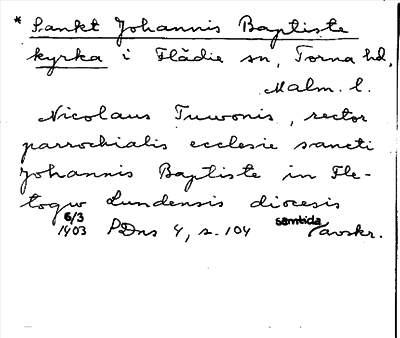 * Sankt Johannis Baptiste
kyrka i Flädie sn, Torna hd,
Malm. l.
Nicolaus Tuwonis, rector
parrochialis ecclesie sancti
Johannis Baptiste in Fle-
togw Lundensis diocesis
6/3 1403 PDns 4, s. 104 samtida avskr.